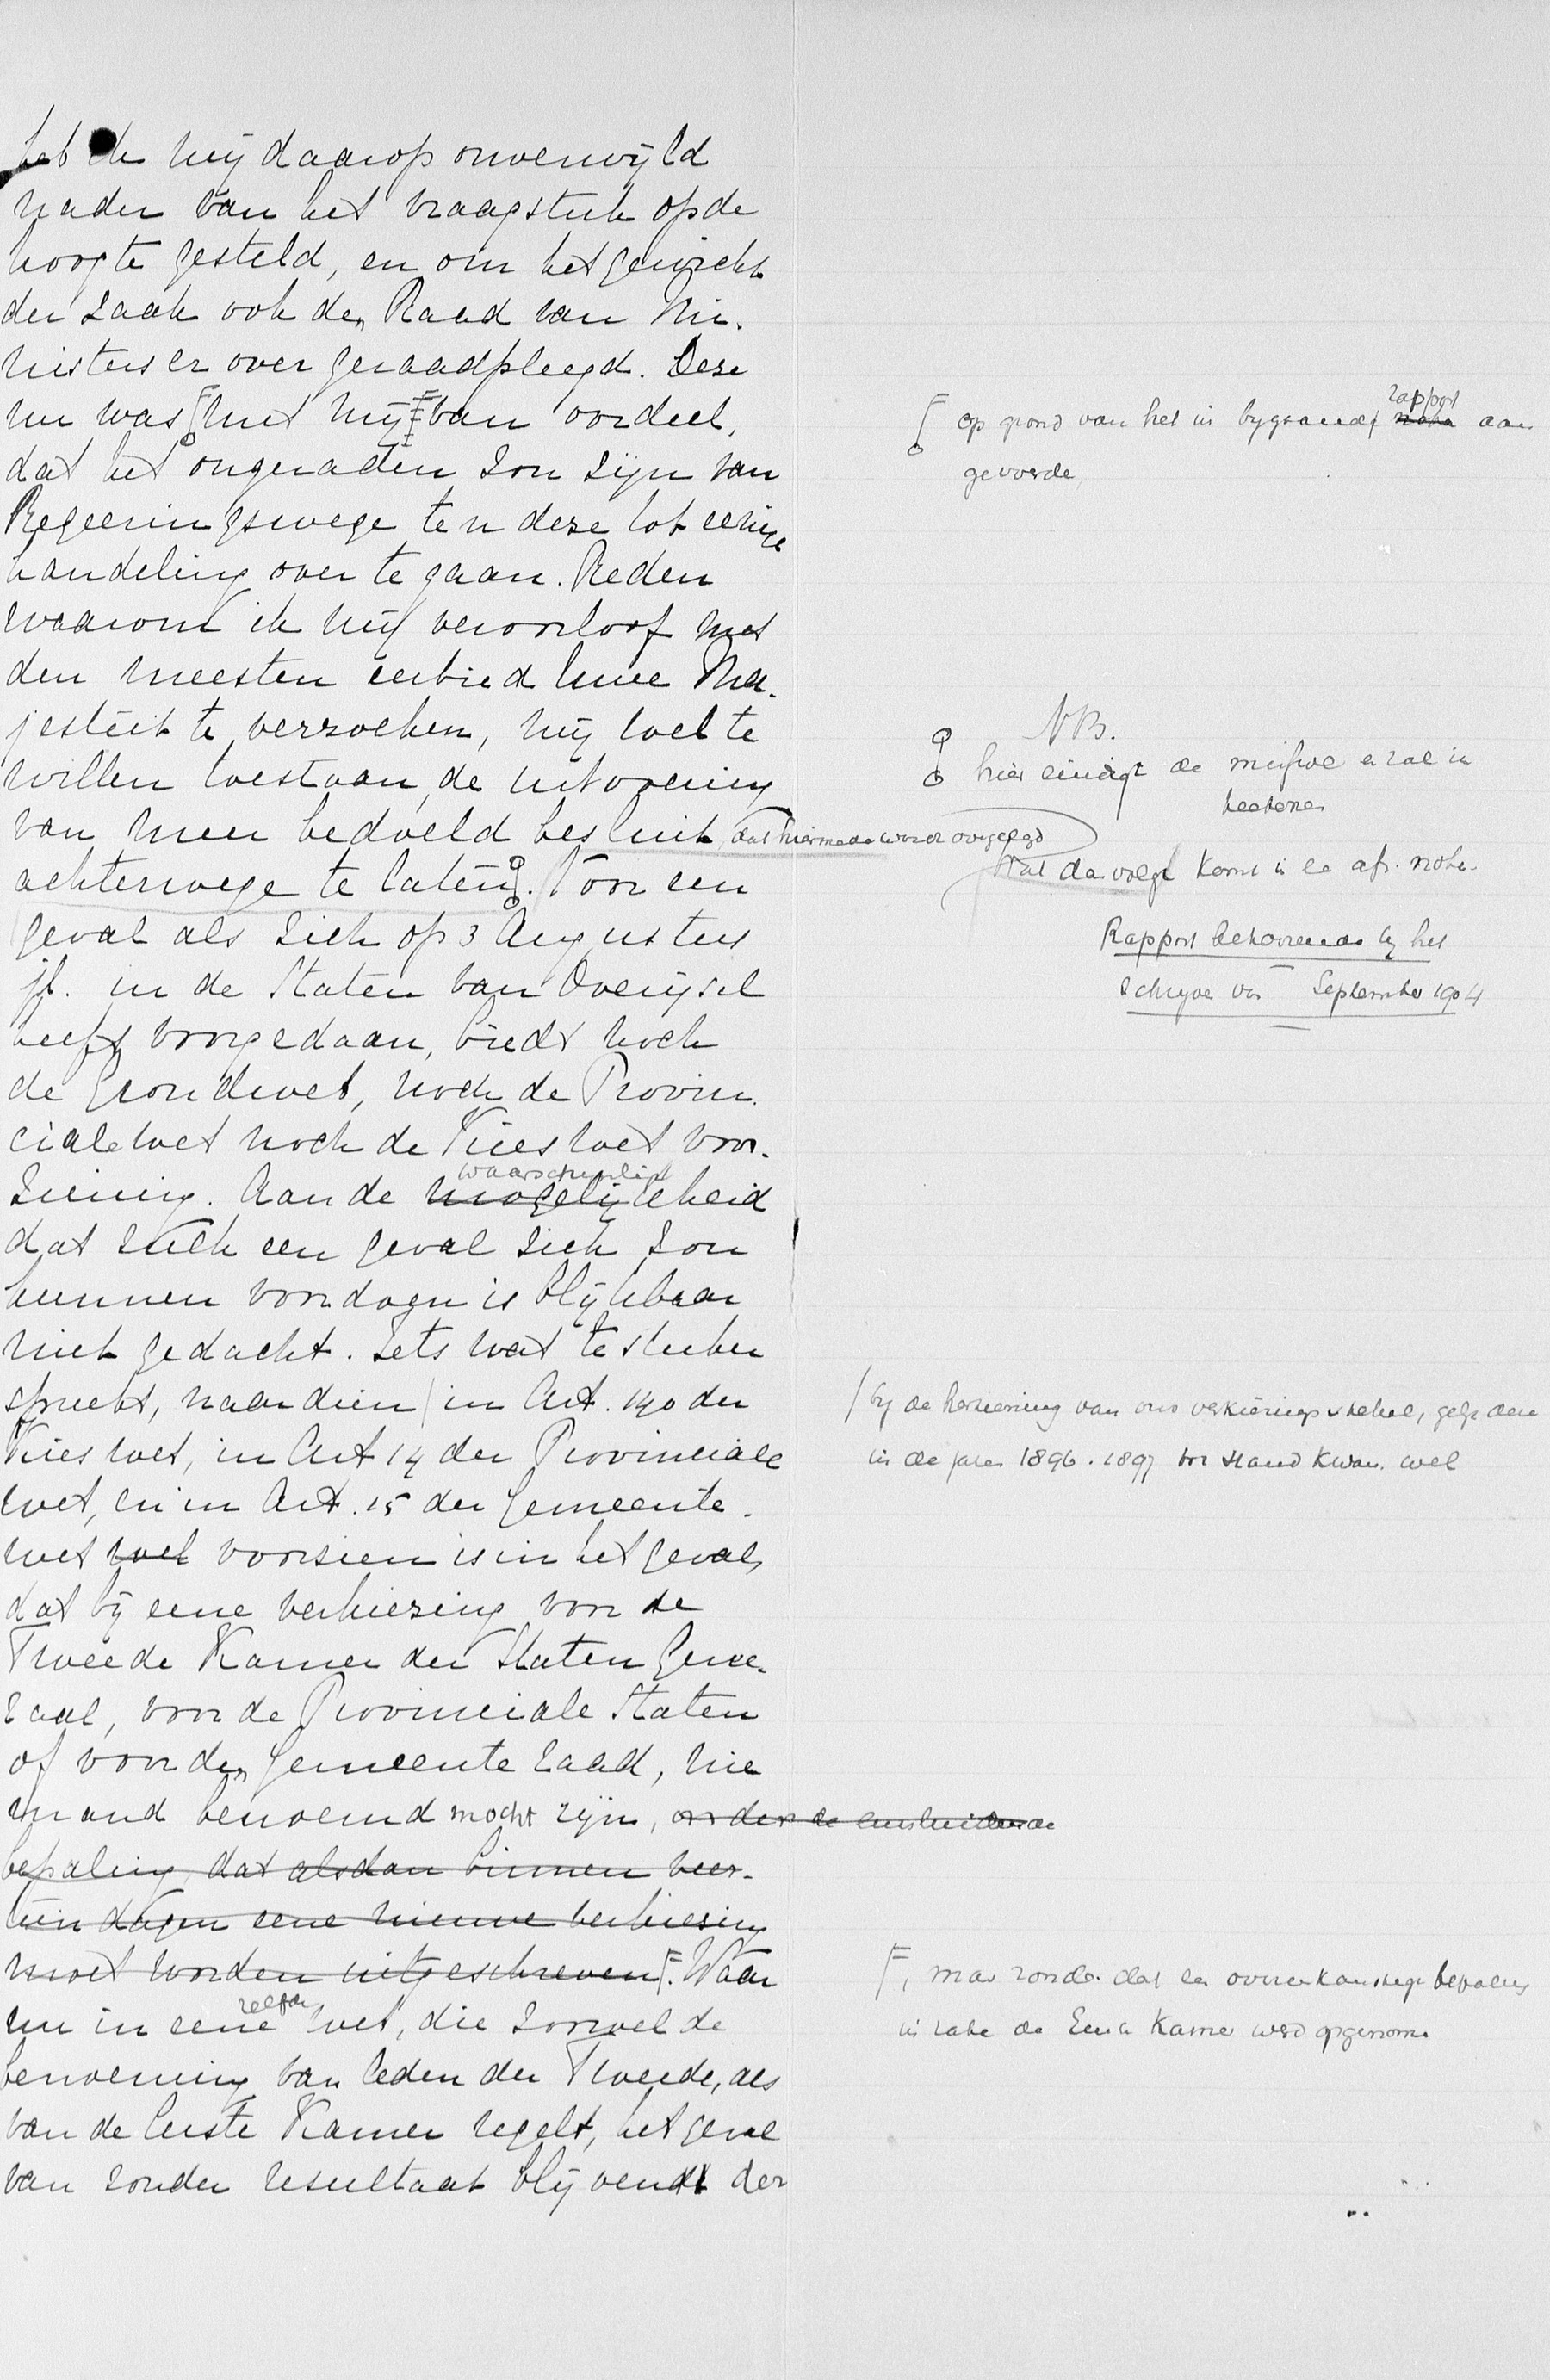 heb ik mij daarop onverwijld
nader van het vraagstuk op de
hoogte gesteld, en om het gewicht
der zaak ook den Raad van Mi-
nisters er over geraadpleegd. Deze
nu was met mij van oordeel,
op grond van het in bijgaand rapport nota aan
gevoerde
dat het ongeraden zou zijn van
Regeeringswege te n deze tot eenige
handeling over te gaan. Reden
waarom ik mij veroorloof met
den meesten eerbied Uwe Ma-
jesteit te verzoeken, mij wel te
willen toestaan, de uitvoering
van meer bedoeld besluit dat hiermede wordt overgelegd
achterwege te laten.
NB.
hier eindigt de missive
Wat da volgt komt in de afz. nota.
Rapport behoorende bij het
schrijve van September 1904
Voor een
geval als zich op 3 Augustus
jl. in de Staten van Overijsel
heeft voorgedaan, biedt noch
de Grondwet, noch de Provin-
ciale wet noch de Kieswet voor-
ziening. Aan de mogelijkheid
waarschijnlijk
dat zulk een geval zich zou
kunnen voordoen is blijkbaar
niet gedacht. Iets wat te sterker
spreekt, naardien in Art. 140 der
/ bij de herziening van ons verkiezings stelsel, gelijk deze
in de jaren 1896-1897 tot stand kwam, wel
Kieswet, in Art 14 der Provinciale
wet, en in Art. 15 der Gemeente-
wet wel voorzien is in het geval,
dat bij eene verkiezing voor de
Tweede Kamer der Staten Gene-
raal, voor de Provinciale Staten
of voor den Gemeente raad, nie
mand benoemd mocht zijn, onder de
bepaling, dat alsdan binnen veer-
tien dagen eene nieuwe verkiezing
moet worden uitgeschreven. Waar
, maar zonder dat een overeenkomstige bepaling
in zake de Eerste Kamer werd opgenomen
nu in eene zelfde wet, die zoowel de
benoeming van leden der Tweede, als
van de Eerste Kamer regelt, het geval
van zonder resultaat blijvende der